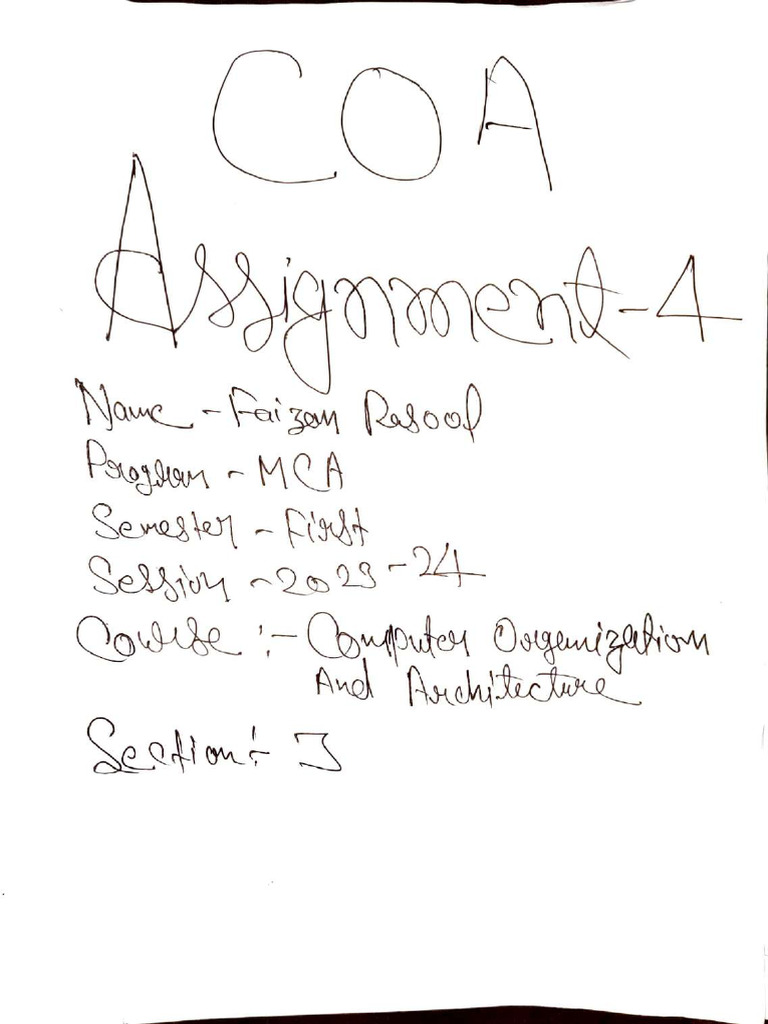 COA
Assignment-4
Name - Faizan Rasool
Program - MCA
Semester - First
Session - 2023-24
Course :- Computer Organization
And Architecture
Section :- J